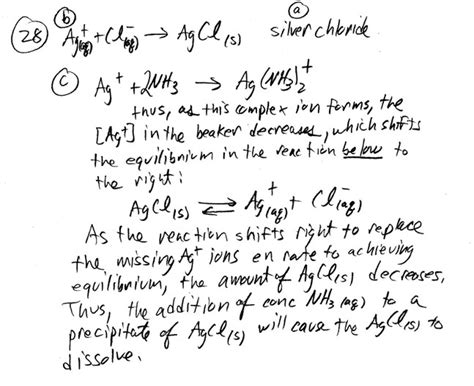 (28) (b) Ag⁺(aq) + Cl⁻(aq) → AgCl(s) (a) silver chloride
(c) Ag⁺ + 2NH3 → Ag(NH3)2⁺
thus, as this complex ion forms, the
[Ag⁺] in the beaker decreases, which shifts
the equilibrium in the reaction below to
the right:
AgCl(s) ⇌ Ag⁺(aq) + Cl⁻(aq)
As the reaction shifts right to replace
the missing Ag⁺ ions en rate to achieving
equilibrium, the amount of AgCl(s) decreases.
Thus, the addition of conc NH3(aq) to a
precipitate of AgCl(s) will cause the AgCl(s) to
dissolve.